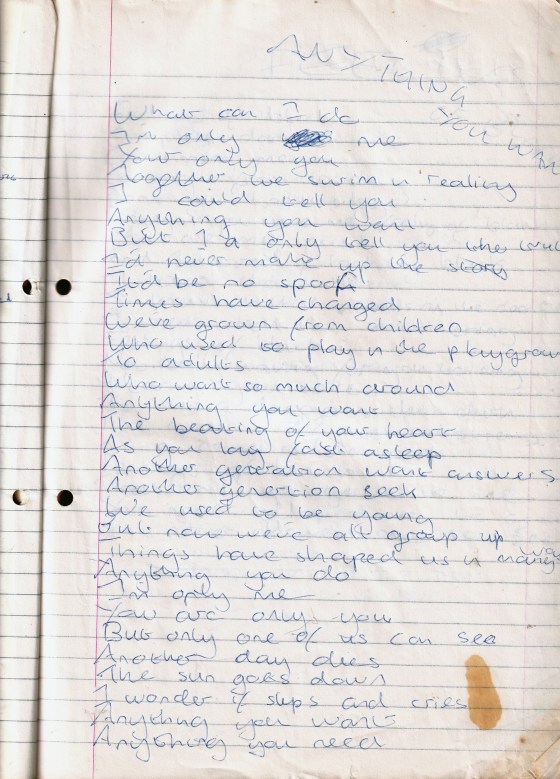 ANYTHING
YOU WAN
What can I do
I'm only me
Your only you
Together we swim n reality
I could tell you
Anything you want
But I'd only tell you the
I'd never make up the story
It'd be no spoof
Times have changed
We've grown from children
Who used to play n the playgroun
To adults
Who want so much around
Anything you want
The beating of your heart
As you lay fast asleep
Another generation want answers
Another genertion seek
We used to be young
But now we're all group up
Things have shaped us in many wa
Anything you do
I'm only me
You are only you
But only one of us can see
Another day dies
The sun goes down
I wonder if and cries
Anything you want
Anything you need